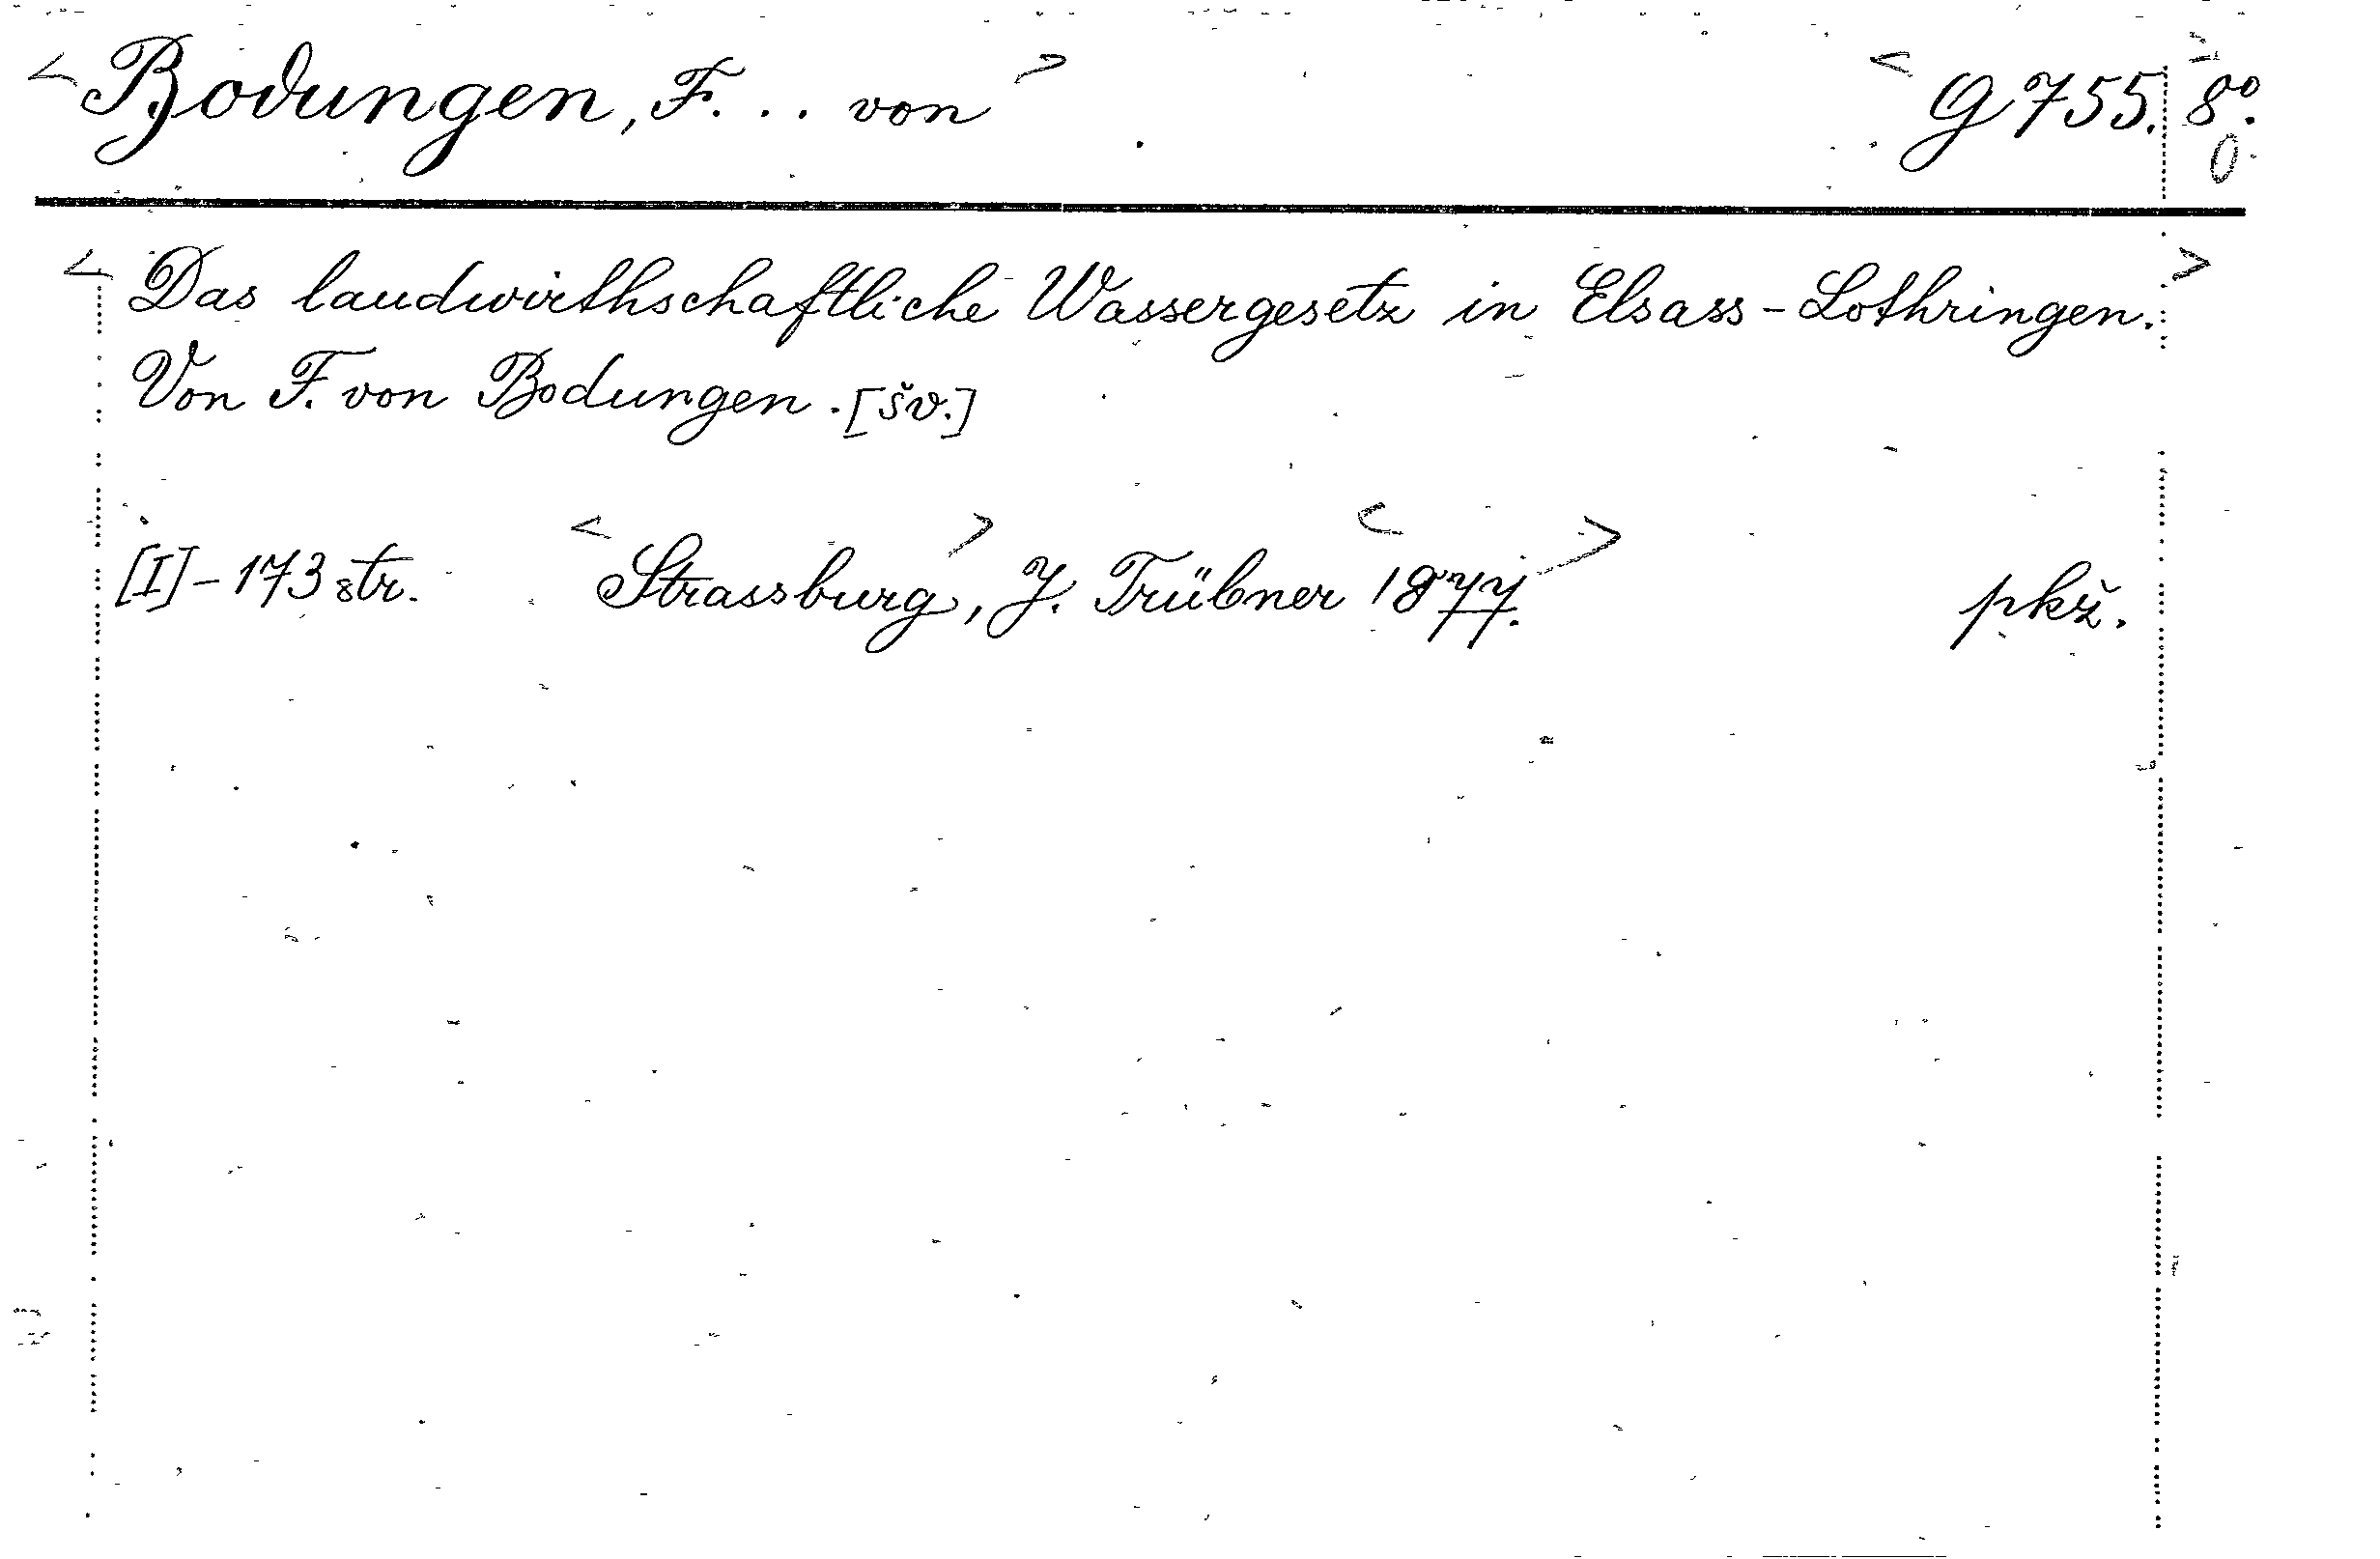 <Bodungen, F... von> <G 755. 8°.>
0
<Das landwirthschaftliche Wassergesetz in Elsass-Lothringen.>
Von F. von Bodungen. [šv.]
[I]-173 str. <Strassburg>, J. Trübner <1877.> pkž.